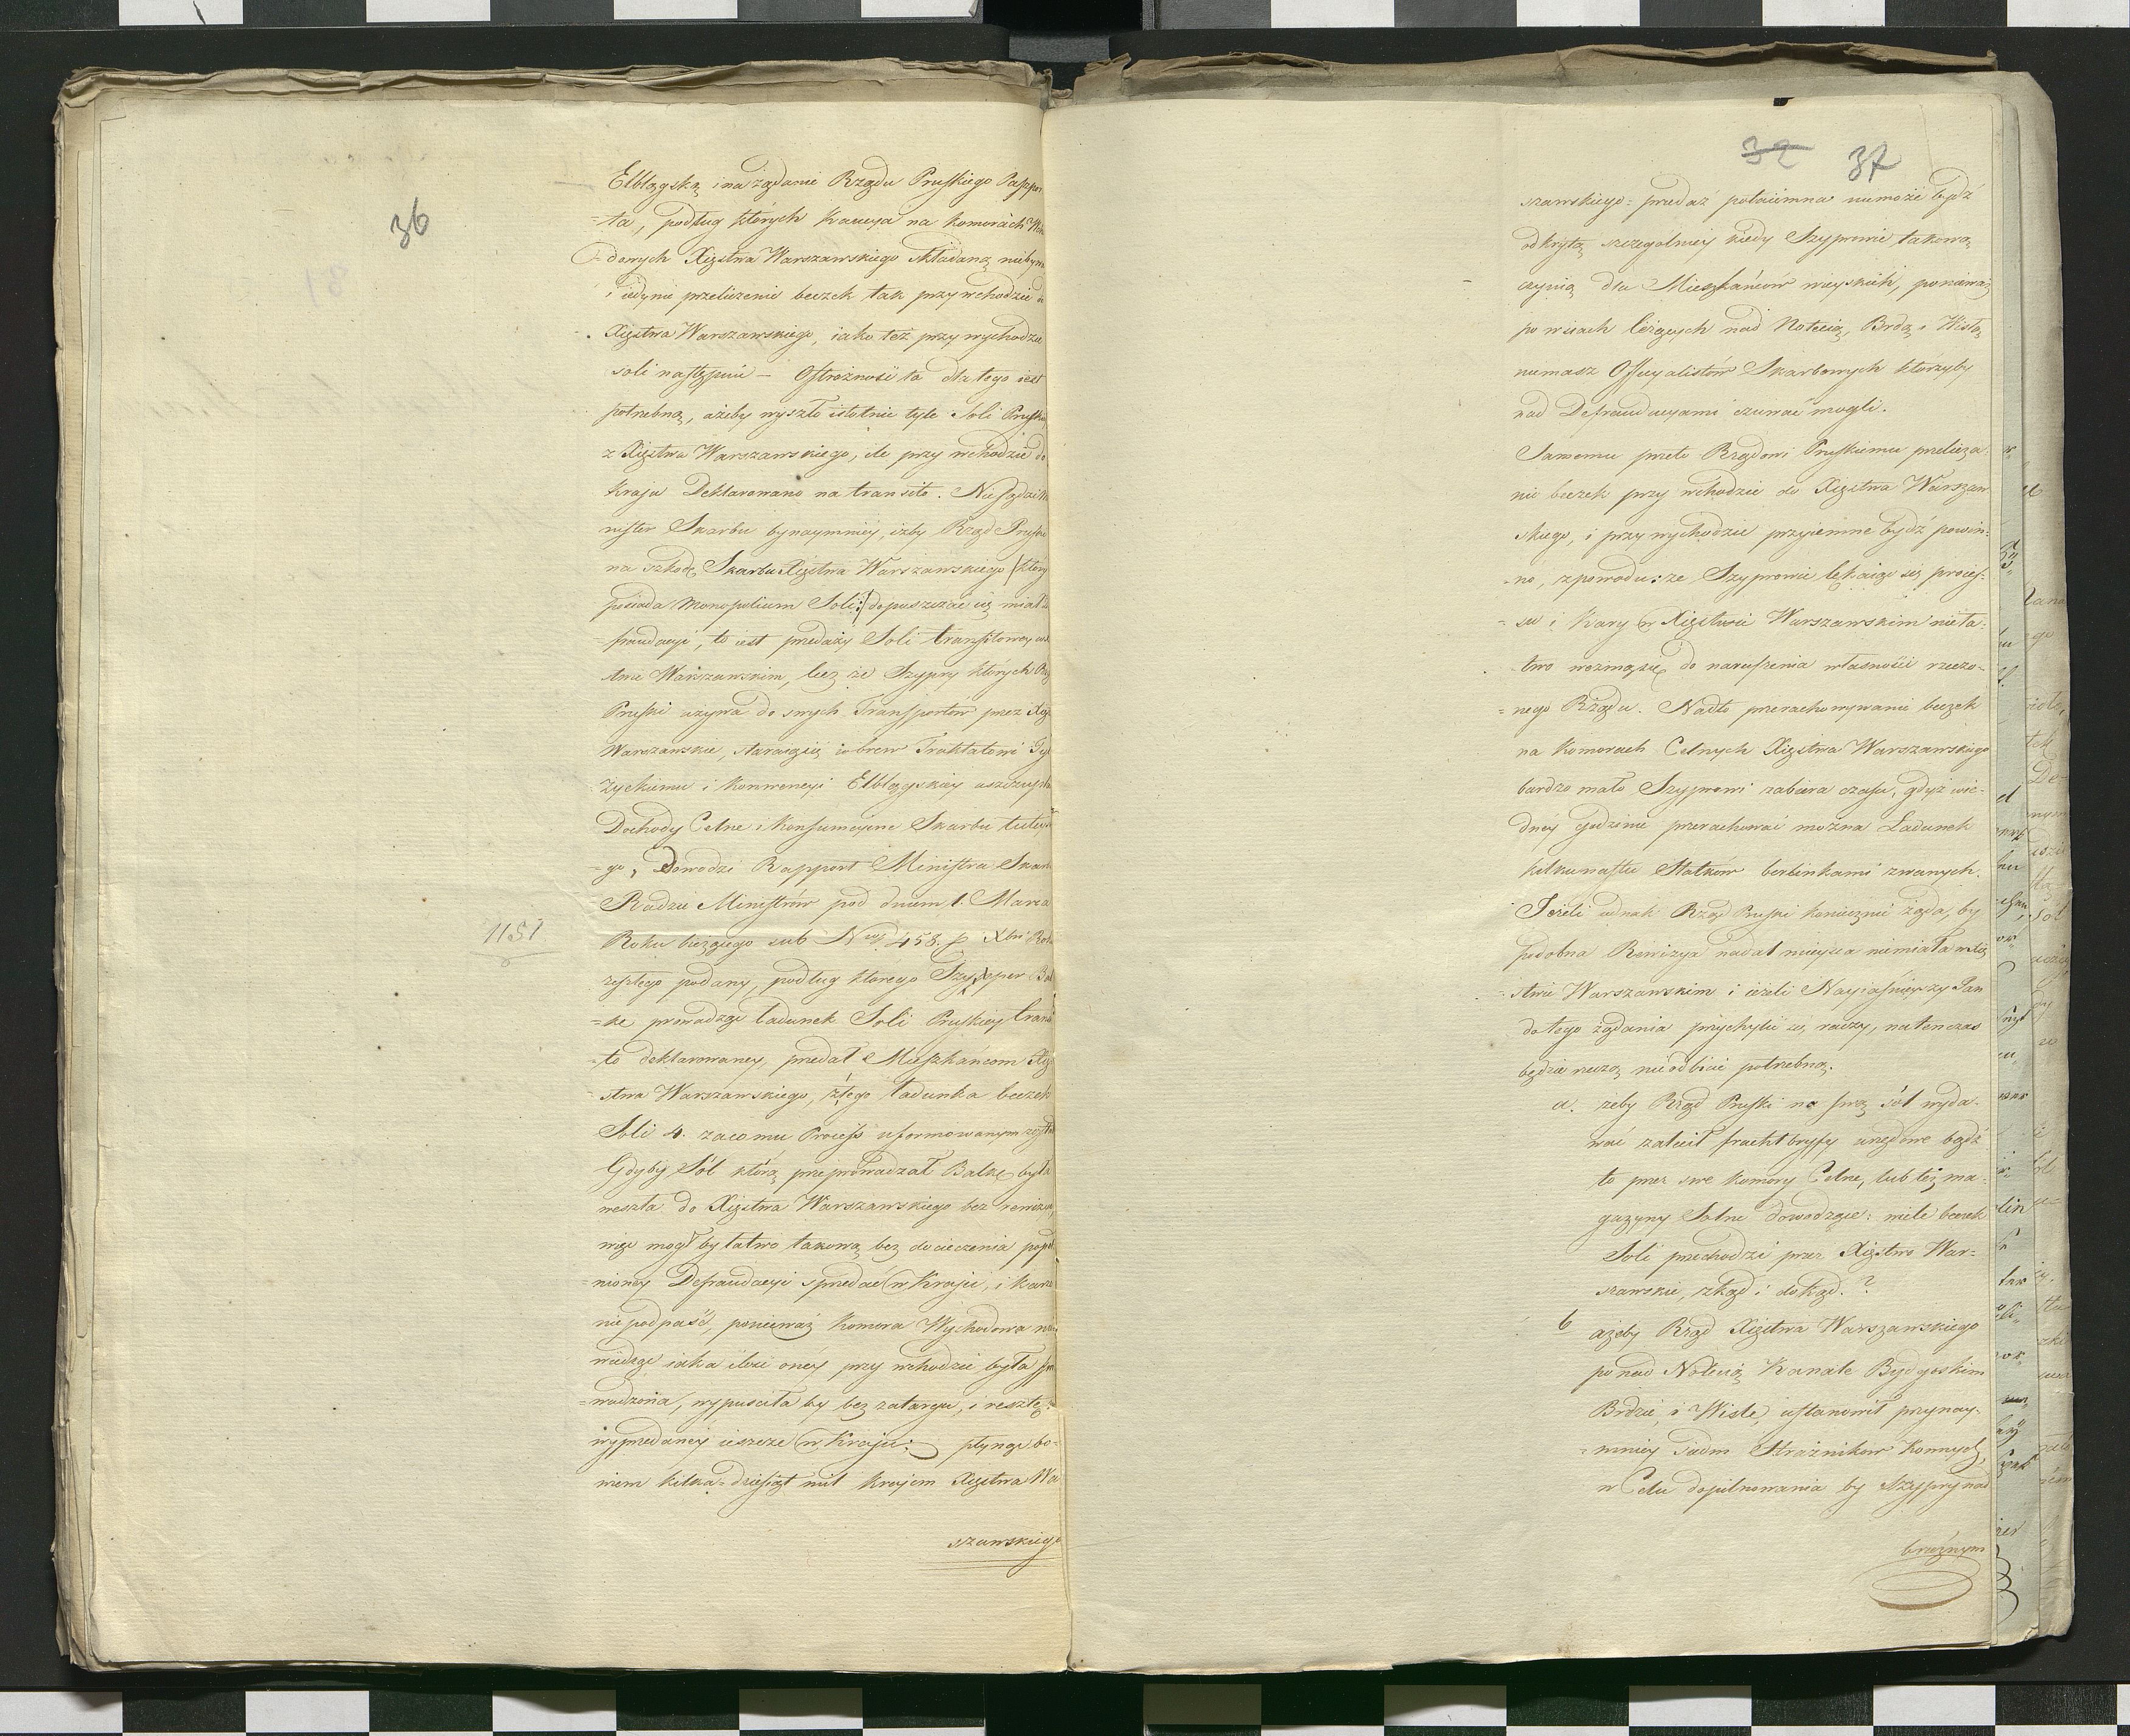 36
Elblągską i na żądanie Rządu Pruskiego Paszpor
=ta, podług których Kaucya na Komorach
dowych Xięstwa Warszawskiego składaną niebywa
i iedynie przeliczenie beczek tak przy wchodzie do
Xięstwa Warszawskiego, iako też przy wychodzie
soli następuie – Ostrożność ta dla tego iest
potrzebną, ażeby wyszło istotnie tyle Soli Pruskiey
z Xięstwa Warszawskiego, ile przy wchodzie do
Kraju Deklarowano na transito. Niesądzi Mi
nister Skarbu bynaymniey, iżby Rząd Pruski
na szkodę Skarbu Xięstwa Warszawskiego /: który
posiada Monopolium Soli :/ dopuszczać się miał de
fraudacyi, to iest przedaży Soli transitowey w Xię
stwie Warszawskim, lecz że Szypry których Rząd
Pruski używa do swych Transportów przez Xięs
Warszawskie, staraią się wbrew Traktatowi Tyl
życkiemu i Konwencyi Elblągskiey uszczuplać
Dochody Celne i Konsumcyine Skarbu tuteysze
=go, Dowodzi Rapport Ministra Skarbu
Radzie Ministrów pod dniem 1. Marca
1151.
Roku bieżącego sub 458. Xbri Roku
zeszłego podany, podług którego Szyper Bal
=ke prowadząc ładunek Soli Pruskiey transi
=to deklarowaney, przedał Mieszkańcom Xię
=stwa Warszawskiego, z tego ładunka beczek
Soli 4. za co mu Process uformowanym został
Gdyby Sól którą przeprowadzał Balke była
weszła do Xięstwa Warszawskiego bez rewizyi,
więc mógł by łatwo takową bez docieczenia popeł
=nioney Defraudacyi sprzedać w Kraju, i karze
nie podpaść, ponieważ Komora Wychodowa nie
wiedząc iaka ilość oney przy wchodzie była spro
=wadzona, wypuściła by bez zatargu, i resztę
wyprzedaney ieszcze w Kraju: płynąc bo=
wiem kilka=dziesiąt mil kraiem Xięstwa War
szawskiego
32 37
szawskiego = przedaż potaiemna niemoże bydź
odkrytą szczególniey kiedy Szyprowie takową
czynią dla Mieszkańców wieyskich, ponieważ
po wsiach leżących nad Notecią, Brdą i Wisłą
niemasz Officyalistów Skarbowych którzyby
nad Defraudacyami czuwać mogli.
Samemu przeto Rządowi Pruskiemu przelicza
nie beczek przy wchodzie do Xięstwa Warszaw
skiego, i przy wychodzie przyiemne bydź powin=
=no, z powodu: że Szyprowie lękaiąc się proces=
=su i Kary w Xięstwie Warszawskim nieła=
two wezmą się do naruszenia własności rzeczo=
=nego Rządu. Nadto przerachowywanie beczek
na Komorach Celnych Xięstwa Warszawskiego
bardzo mało Szyprowi zabiera czasu, gdyż w ie=
dney godzinie przerachować można Ładunek
kilkunastu Statków berlinkami zwanych.
Jeżeli iednak Rząd Pruski koniecznie żąda, by
podobna Rewizya nadal mieysca niemiała w Xię
=stwie Warszawskim i ieżeli Nayiaśnieyszy Pan
do tego żądania przychylić się raczy, natenczas
będzie rzeczą nieodbicie potrzebną.
a. żeby Rząd Pruski na swą sól wyda=
wać zalecił frachtbryfy urzędowe bądź
to przez swe Komory Celne, lub też ma=
gazyny Solne dowodzące: wiele beczek
Soli przechodzi przez Xięstwo War=
szawskie, zkąd i dokąd.?
b ażeby Rząd Xięstwa Warszawskiego
ponad Notecią Kanale Bydgoskim
Brdzie, i Wiśle, ustanowił przynay=
=mniey siedm Strażników Konnych,
w Celu dopilnowania by Szypry nad
brzeżnym